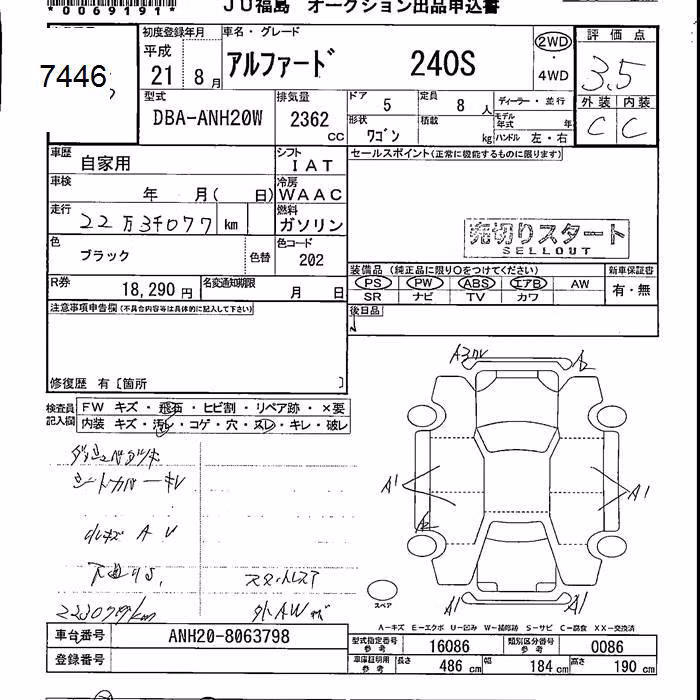 *0069191*
JU福島 オークション出品申込書
7446
初度登録年月
平成
21 8月
車名・グレード
アルファード 240S
2WD
・
4WD
評価点
3.5
外装 内装
C C
型式
DBA-ANH20W
排気量
2362
CC
ドア 5
定員 8 人
ディーラー・並行
形状
ワゴン
積載
kg
モデル年式 年
ハンドル 左・右
車歴 自家用
シフト
IAT
セールスポイント(正常に機能するものに限ります)
車検 年 月( 日)
冷房
WAAC
走行 22万3千077 km
燃料
ガソリン
売切りスタート
SELLOUT
色 ブラック
色替
色コード
202
装備品 (純正品に限り○をつけてください)
新車保証書
PS PW ABS エアB AW
SR ナビ TV カワ
有・無
R券 18,290 円
名変通知期限 月 日
後日品
注意事項申告欄(不具合内容等は具体的に記入して下さい)
修復歴 有 [箇所 ]
検査員
記入欄
FW キズ・飛石・ヒビ割・リペア跡・×要
内装 キズ・汚レ・コゲ・穴・スレ・キレ・破レ
シートカバーキレ
小キズ A U
スタットレス
223079km
外AWキズ
A2
A1
A1
A1
A1
スペア
A-キズ E-エクボ U-凹み W-補修跡 S-サビ C-腐食 XX-交換済
車台番号 ANH20-8063798
登録番号
型式指定番号
参考
16086
類別区分番号
参考
0086
車庫証明用
参考
長さ 486 cm
幅 184 cm
高さ 190 cm